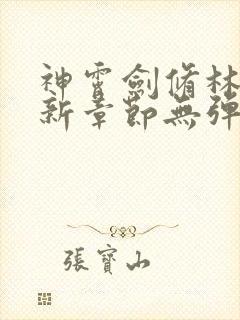 神霄劍脩林
新章節無彈
張寶山